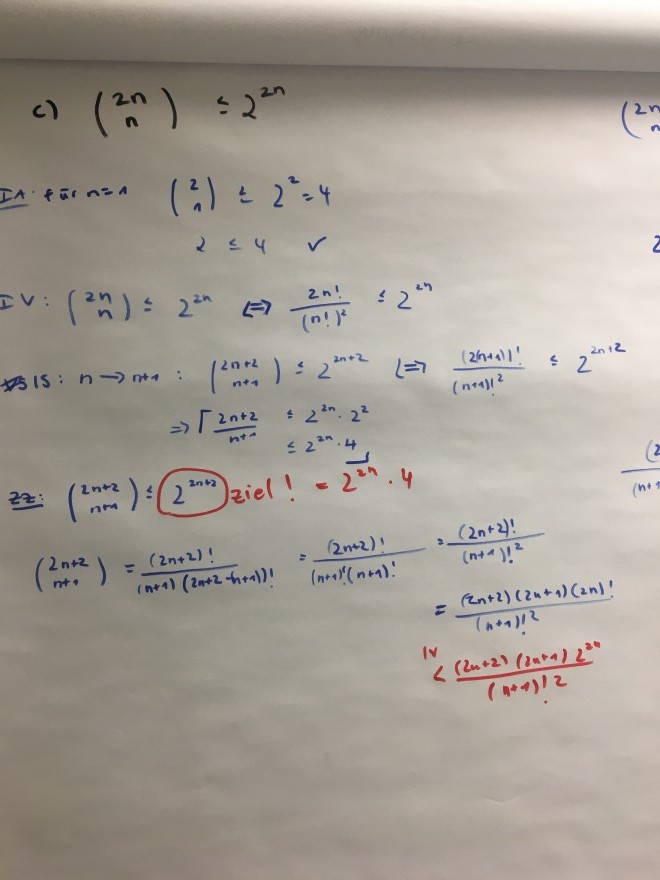 c) (2n n) ≤ 2^{2n}
IA: für n=1 (2 1) ≤ 2^2 = 4
2 ≤ 4 ✓
IV: (2n n) ≤ 2^{2n} ⟺ 2n!/(n!)^2 ≤ 2^{2n}
IS: n → n+1: (2n+2 n+1) ≤ 2^{2n+2} ⟺ (2(n+1))!/(n+1)!^2 ≤ 2^{2n+2}
⇒ 2n+2/n+1 ≤ 2^{2n} · 2^2
≤ 2^{2n} · 4
ZZ: (2n+2 n+1) ≤ 2^{2n+2} ziel! = 2^{2n} · 4
(2n+2 n+1) = (2n+2)!/(n+1)(2n+2-(n+1))! = (2n+2)!/(n+1)!(n+1)! = (2n+2)!/(n+1)!^2
= (2n+2)(2n+1)(2n)!/(n+1)!^2
IV
< (2n+2)(2n+1)2^{2n}/(n+1)!2